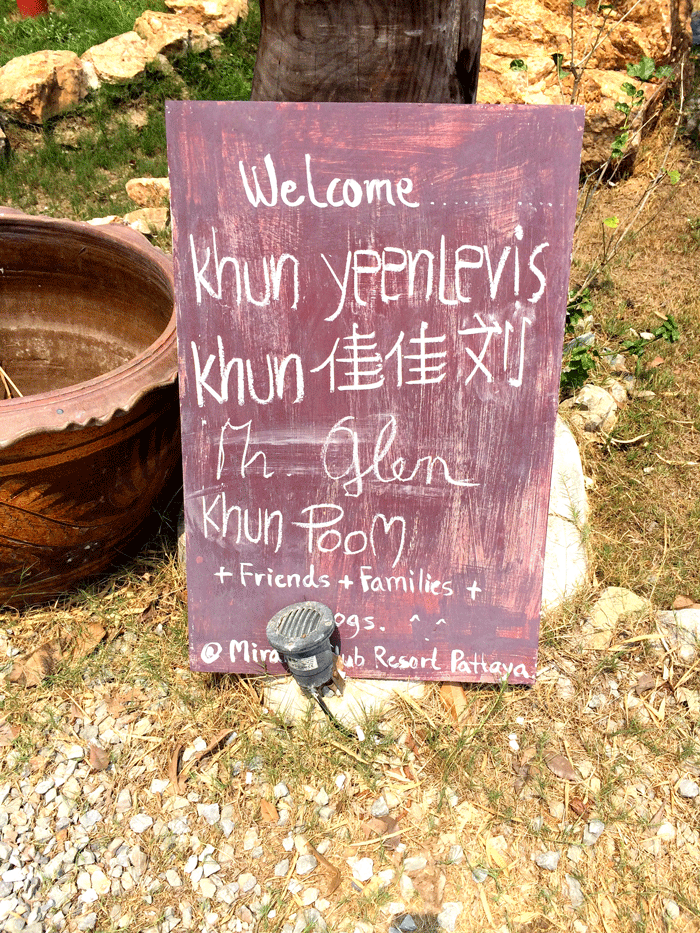 Welcome..............
Khun YeenLevis
Khun 佳佳刘
Mr. Glen
Khun Poom
+ Friends + Families +
ogs. ^_^
@ Mira ub Resort Pattaya